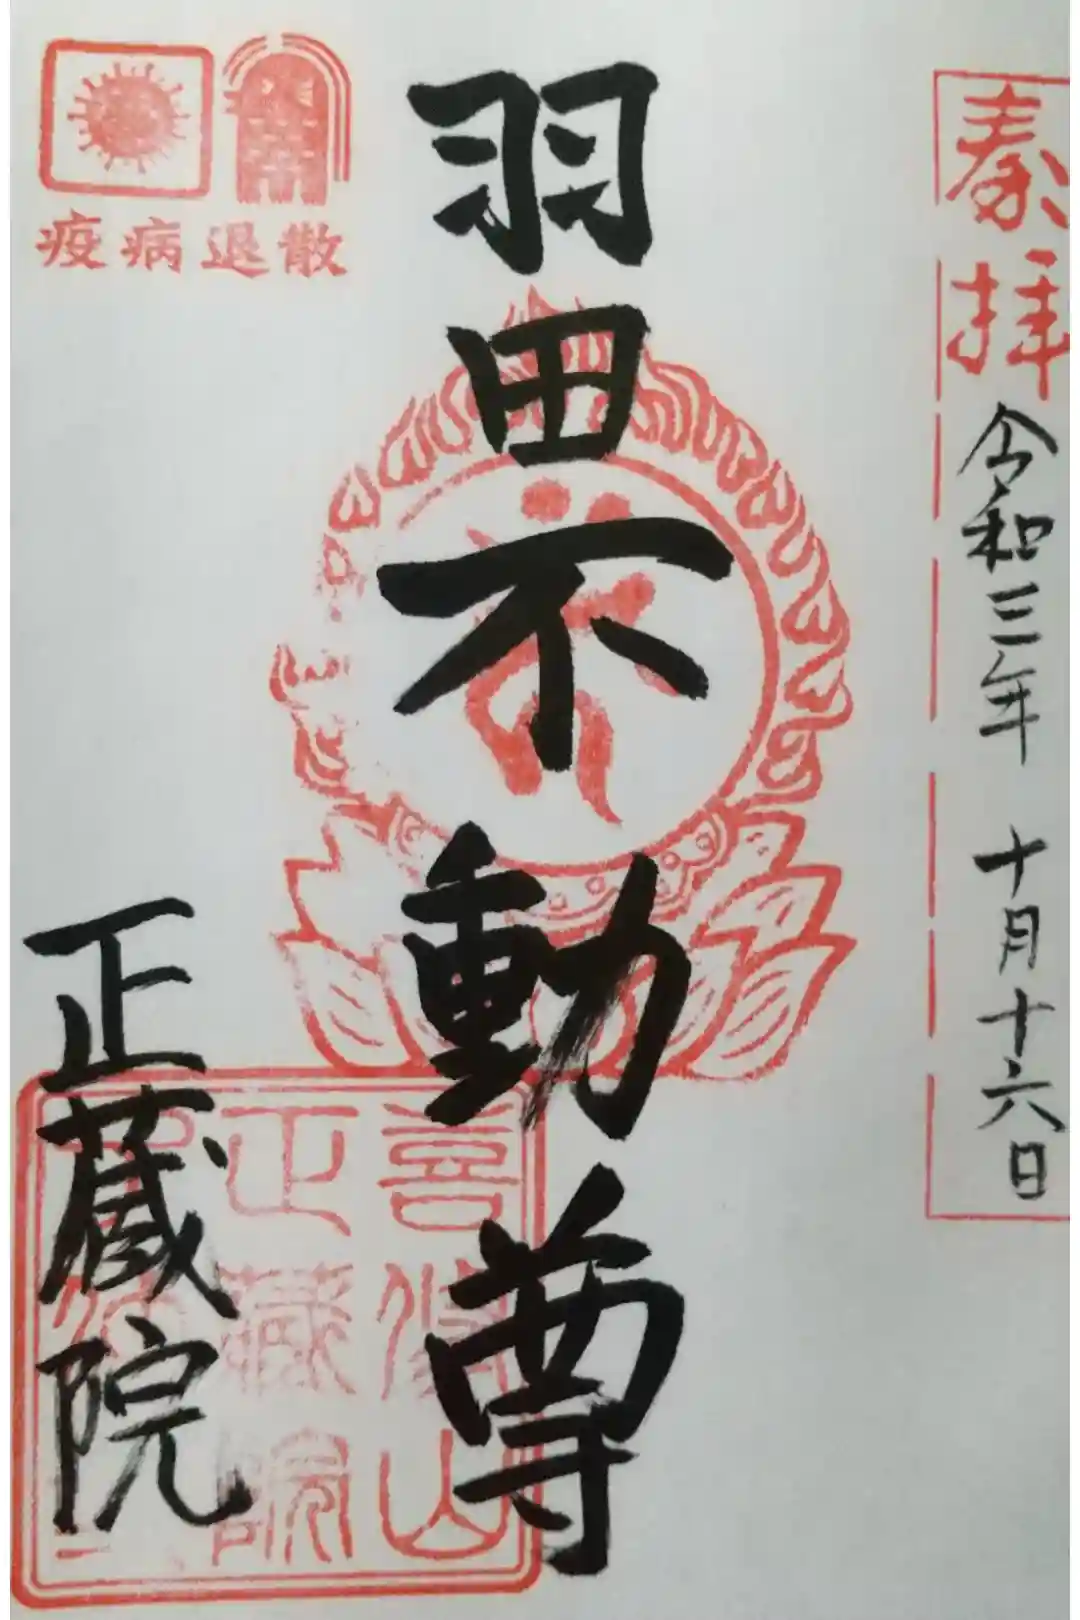 奉拝
令和三年 十月十六日
羽田不動尊
疫病退散
正蔵院
正藏院